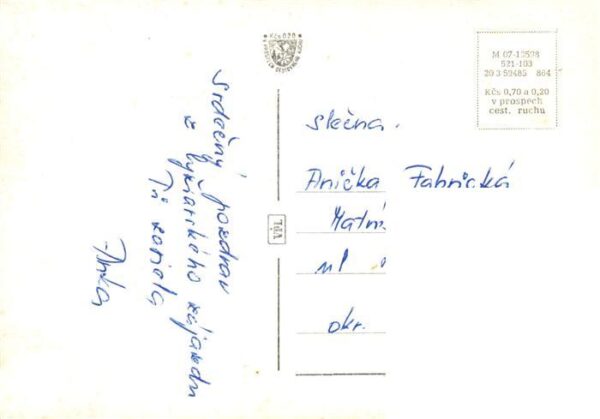 Kčs 0,20
M 07-13598
521-103
20 3 59485 864
Kčs 0,70 a 0,20
v prospech
cest. ruchu
Srdečný pozdrav
z lyžiarského zájazdu
Ti posiela
Anka
slečna.
Anička Fabrická
ul
okr.